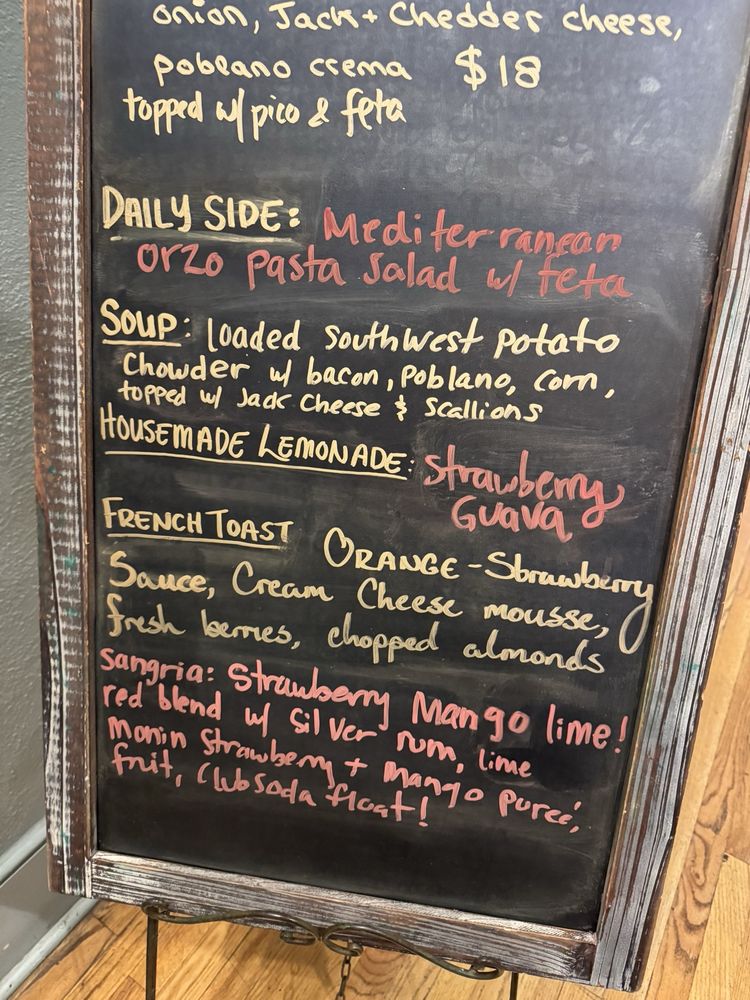 onion, Jack + Chedder cheese,
poblano crema $18
topped w/ pico & feta
DAILY SIDE: Mediterranean
orzo pasta salad w/ feta
SOUP: loaded southwest potato
Chowder w/ bacon, poblano, corn,
topped w/ Jack Cheese & Scallions
HOUSEMADE LEMONADE: Strawberry
Guava
FRENCH TOAST ORANGE-Strawberry
Sauce, Cream Cheese mousse,
fresh berries, chopped almonds
Sangria: Strawberry Mango lime!
red blend w/ Silver rum, lime
monin Strawberry + mango pureé,
fruit, Club Soda float!